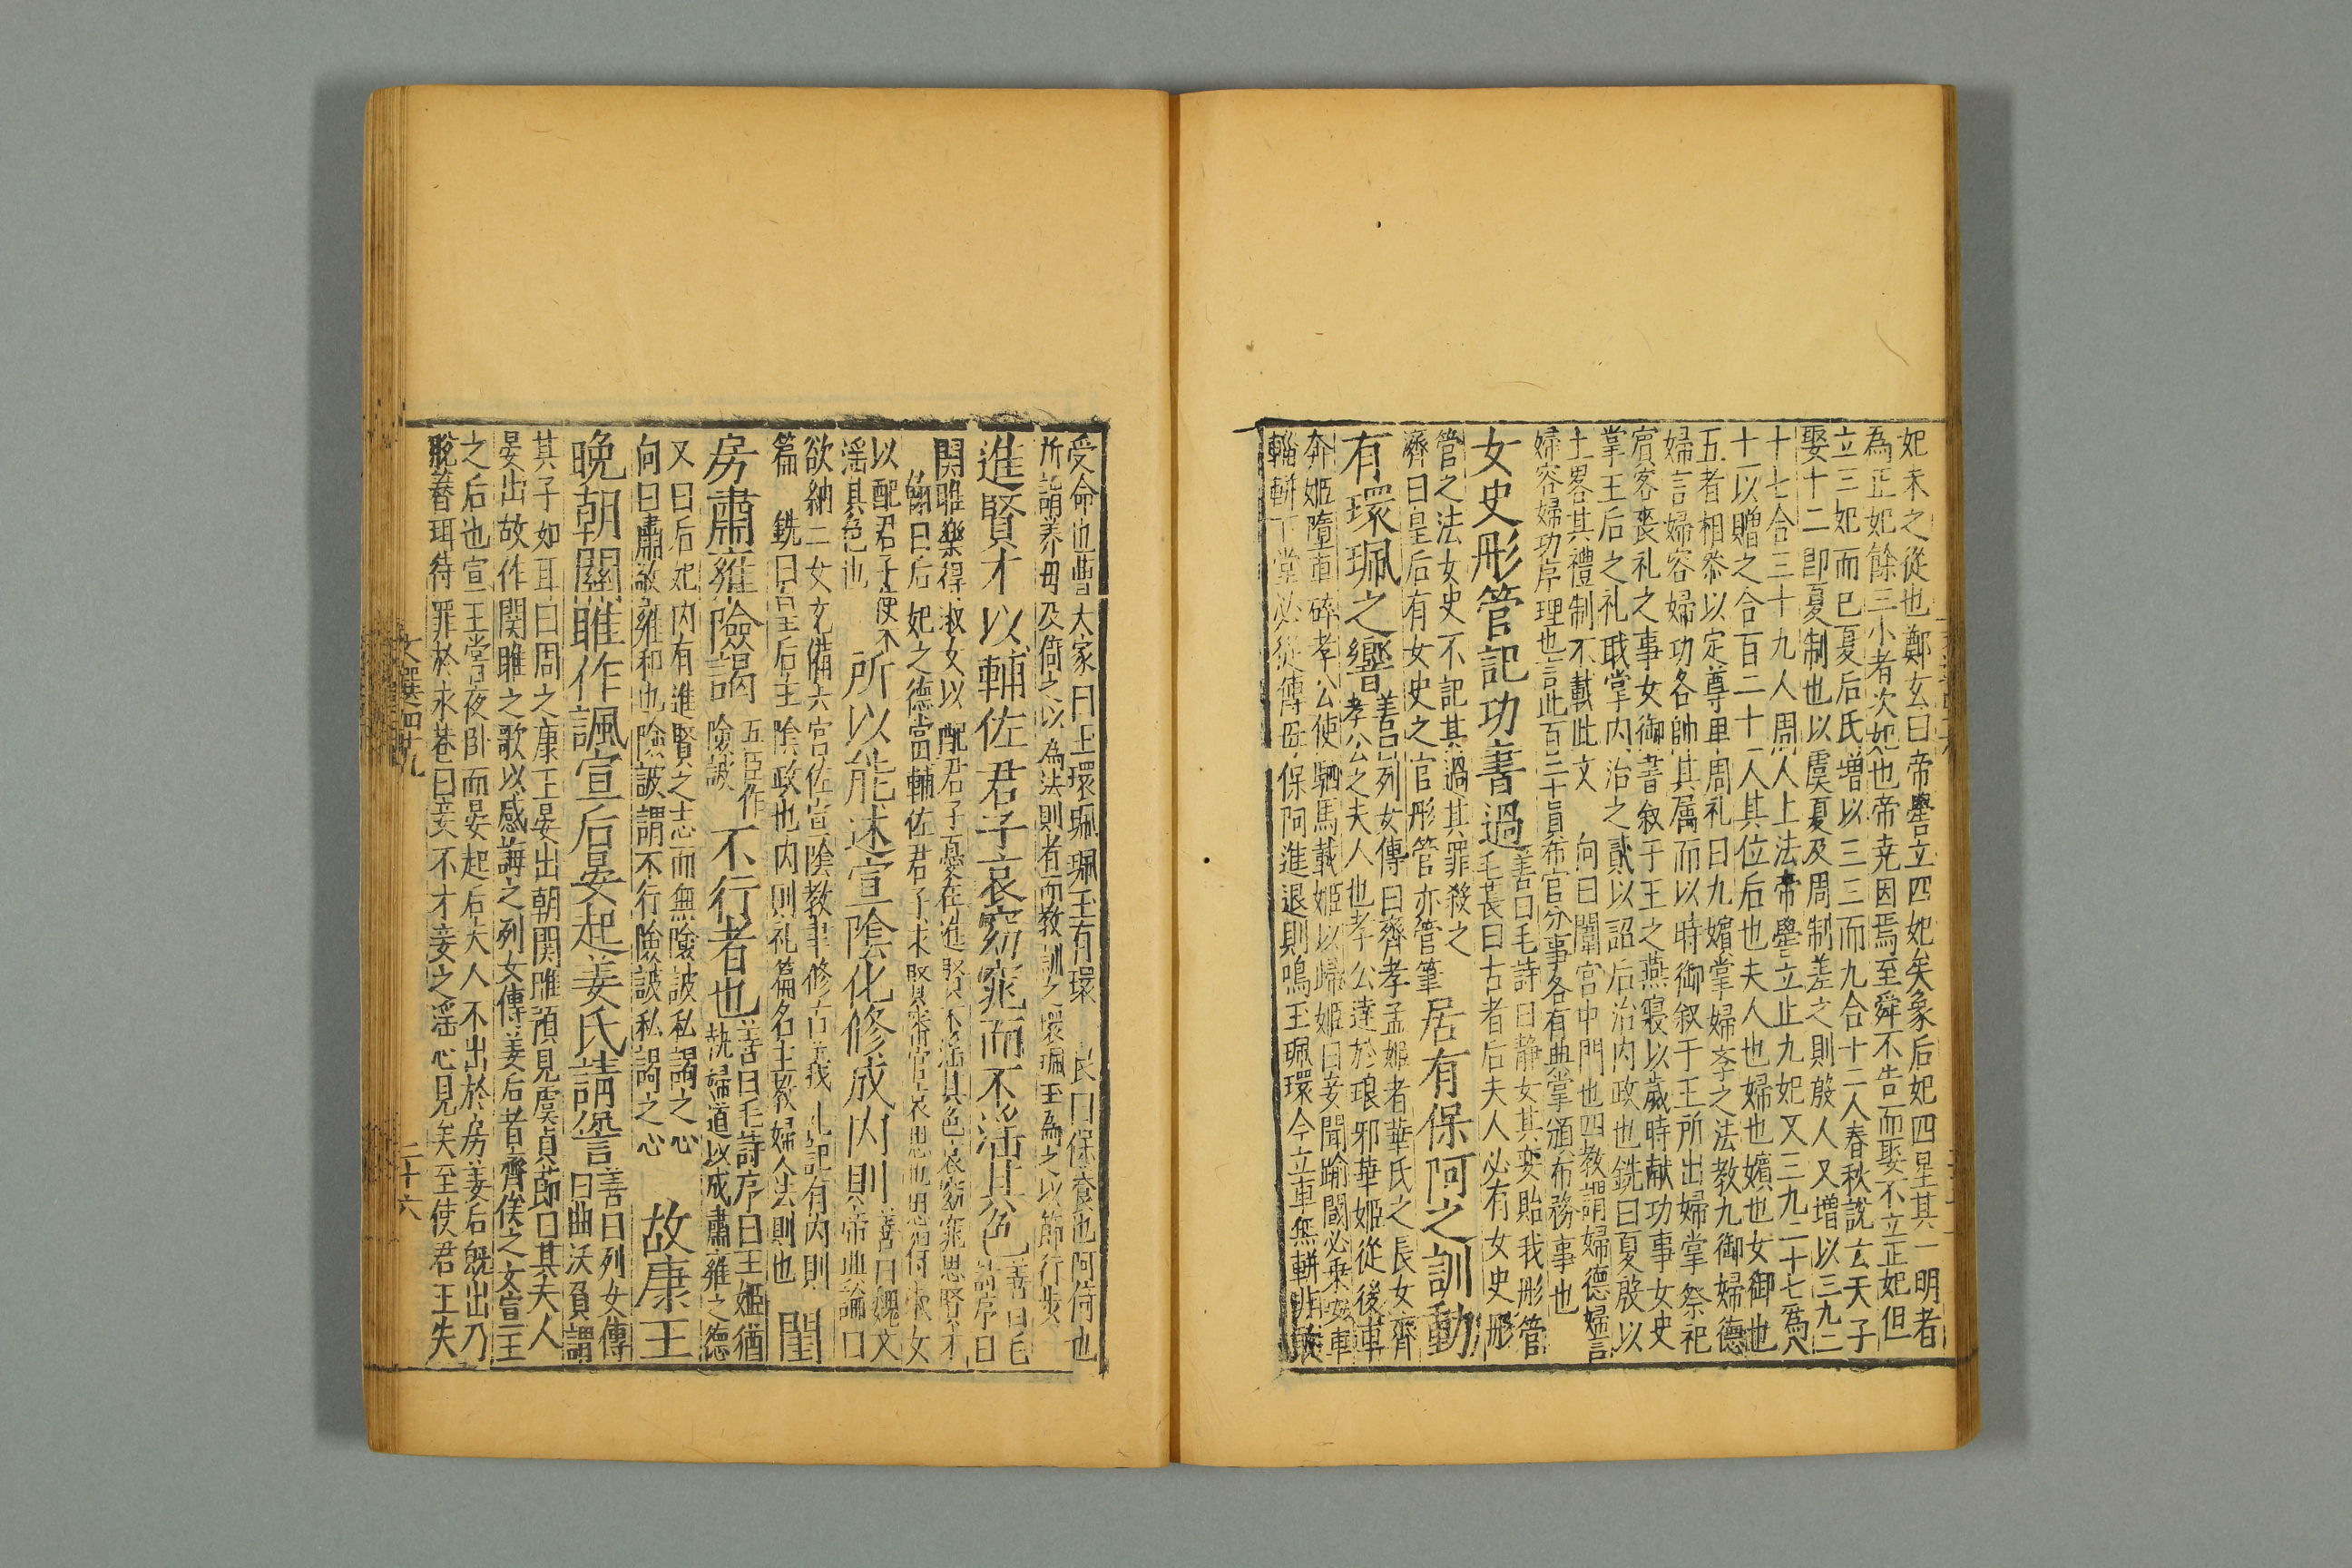 妃未之從也鄭玄曰帝嚳立四妃矣象后妃四星其一明者
為正妃餘三小者次妃也帝堯因焉至舜不告而娶不立正妃但
立三妃而已夏后氏增以三三而九合十二人春秋說云天子
娶十二即夏制也以虞夏及周制差之則殷人又增以三九二
十七合三十九人周人上法帝嚳立正九妃又三九二十七爲八
十一以贈之合百二十一人其位后也夫人也婦也嬪也女御也
五者相叅以定尊卑周礼曰九嬪掌婦斈之法教九御婦德
婦言婦容婦功各帥其属而以時御叙于王所出婦掌祭祀
賔客喪礼之事女御書叙于王之燕寢以歲時献功事女史
掌王后之礼職掌内治之貳以詔后治内政也銑曰夏殷以
土畧其禮制不載此文 向曰闈宫中門也四教謂婦德婦言
婦容婦功序理也言此百二十員布官分事各有典掌頒布務事也
女史彤管記功書過善曰毛詩曰静女其孌貽我彤管
毛萇曰古者后夫人必有女史彤
管之法女史不記其過其罪殺之
濟曰皇后有女史之官彤管亦管筆居有保阿之訓動
有環珮之響善曰列女傳曰齊孝孟姬者華氏之長女齊
孝公之夫人也孝公逹於琅邪華姬從後車
奔姬墮車碎孝公使駟馬載姬以歸姬曰妾聞踰閾必乗安車
輜軿下堂必從傅母保阿進退則鳴玉珮環今立車無軿非敢
受命也曹大家曰玉環珮珮玉有環 良曰保養也阿倚也
所謂养母及倚之以為法則者而教訓之環珮玉為之以節行步
進賢才以輔佐君子哀窈窕而不滛其色善曰毛
詩序曰
関雎樂得淑女以配君子憂在進賢不滛其色哀窈窕思賢才
翰曰后妃之德當輔佐君子求賢審官哀思也思得淑女
以配君子使不
滛其色也所以能述宣陰化修成内則善曰魏文
帝典論曰
欲納二女玄備六宫佐宣隂教聿修古義 礼記有内則
篇 銑曰皇后主隂政也内則礼篇名主教婦人法則也閨
房肅雍險謁五臣作
險詖不行者也善曰毛詩序曰王姬猶
執婦道以成肅雍之德
又曰后妃内有進賢之志而無險詖私謁之心
向曰肅敬雍和也險詖謂不行險詖私謁之心故康王
晚朝關雎作諷宣后晏起姜氏請愆善曰列女傳
曰曲沃負謂
其子如耳曰周之康王晏出朝関雎預見虞貞節曰其夫人
晏出故作関雎之歌以感誨之列女傳姜后者齊侯之女宣王
之后也宣王嘗夜卧而晏起后夫人不出於房姜后既出乃
脫簪珥待罪於永巷曰妾不才妾之滛心見矣至使君王失
文選四十九
二十六